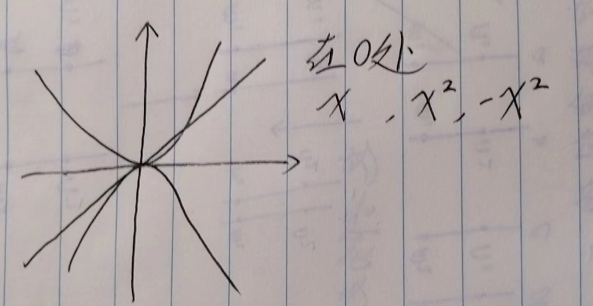 在0处
x , x², -x²